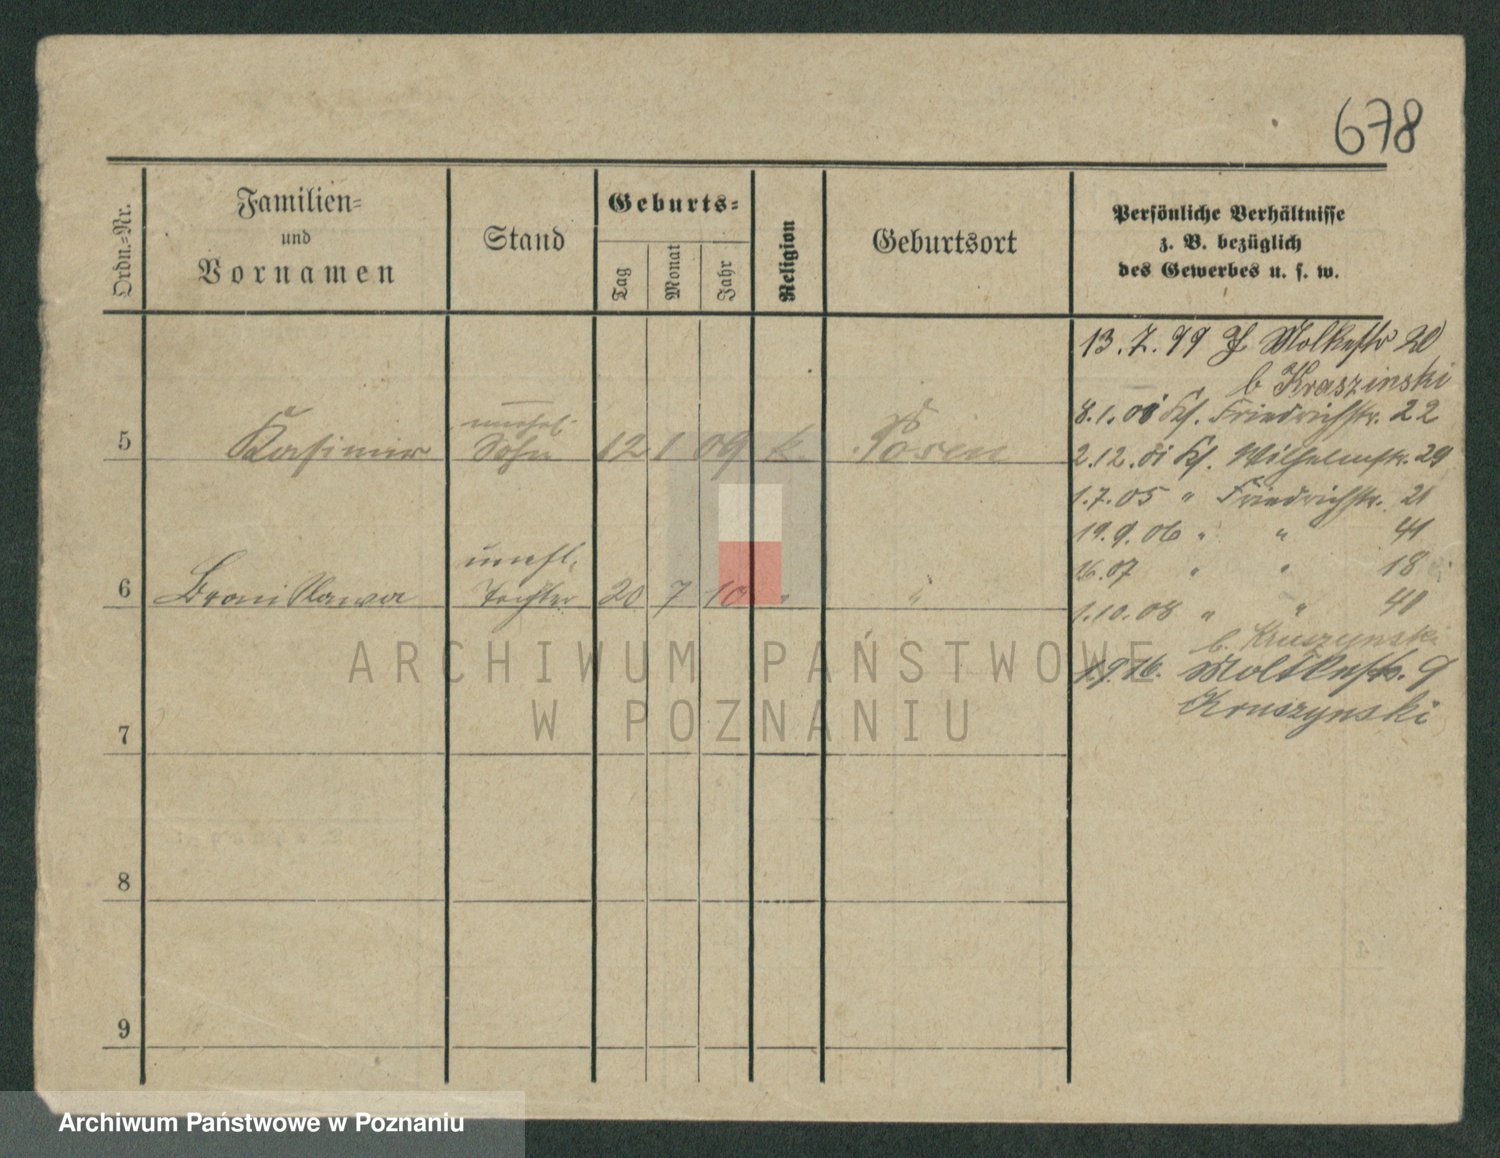 678
Ordn.-Nr.
Familien-
und
Vornamen
Stand
Geburts-
Tag
Monat
Jahr
Religion
Geburtsort
Persönliche Verhältnisse
z. B. bezüglich
des Gewerbes u. s. w.
13.7.99 Molkestr 20
b Kraszinski
8.1.01 Friedrichstr. 22
5 Kasimir unehel. Sohn 12 1 09 k. Posen
2.12.01 Wilhelmstr. 29
1.7.05 " Friedrichstr. 21
19.9.06 " " 41
6 Bronislawa unehl. Tochter 20 7 10 " "
07 " " 18
1.10.08 " " 41
b. Kruszynski
Moltkestr. 9
Kruszynski
7
8
9
ARCHIWUM PAŃSTWOWE
W POZNANIU
Archiwum Państwowe w Poznaniu